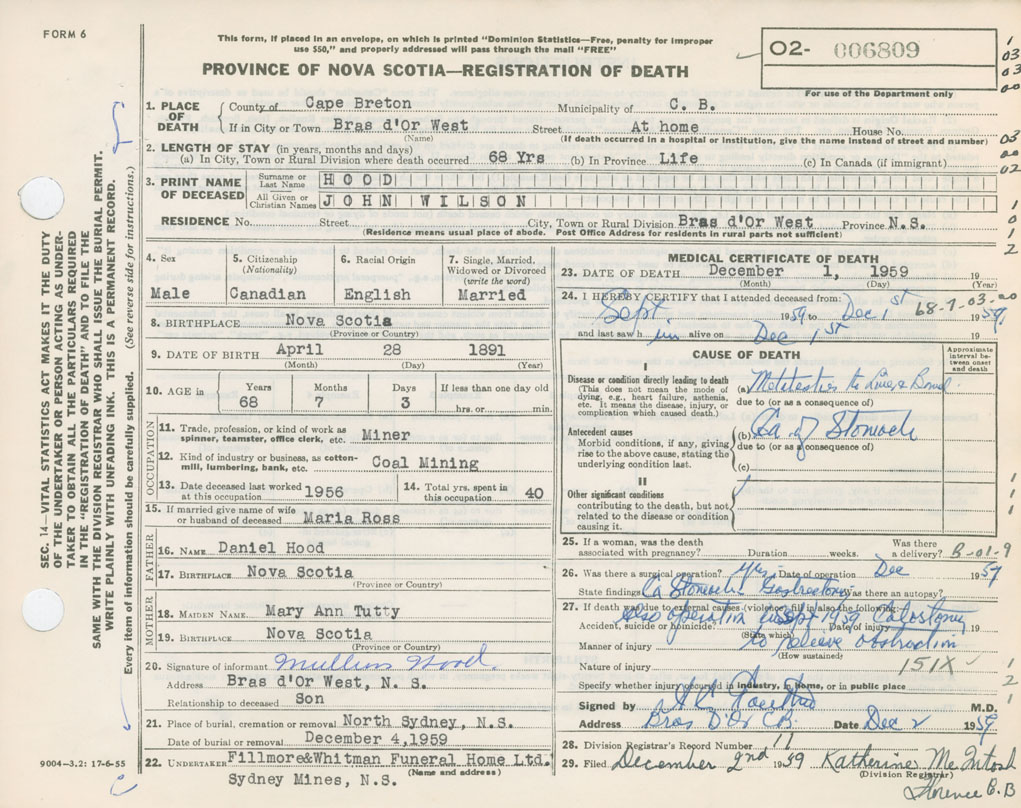 FORM 6
This form, if placed in an envelope, on which is printed "Dominion Statistics—Free, penalty for improper
use $50," and properly addressed will pass through the mail "FREE"
PROVINCE OF NOVA SCOTIA—REGISTRATION OF DEATH
02- 006809
For use of the Department only
1. PLACE OF DEATH
County of Cape Breton Municipality of C. B.
If in City or Town Bras d'Or West Street At home House No.
(Name) (If death occurred in a hospital or institution, give the name instead of street and number)
2. LENGTH OF STAY (in years, months and days)
(a) In City, Town or Rural Division where death occurred 68 Yrs (b) In Province Life (c) In Canada (if immigrant)
3. PRINT NAME OF DECEASED
Surname or Last Name HOOD
All Given or Christian Names JOHN WILSON
RESIDENCE No. Street City, Town or Rural Division Bras d'Or West Province N.S.
(Residence means usual place of abode. Post Office Address for residents in rural parts not sufficient)
4. Sex Male
5. Citizenship (Nationality) Canadian
6. Racial Origin English
7. Single, Married, Widowed or Divorced (write the word) Married
8. BIRTHPLACE Nova Scotia
(Province or Country)
9. DATE OF BIRTH April 28 1891
(Month) (Day) (Year)
10. AGE in Years 68 Months 7 Days 3 If less than one day old
hrs. or min.
OCCUPATION
11. Trade, profession, or kind of work as spinner, teamster, office clerk, etc. Miner
12. Kind of industry or business, as cotton-mill, lumbering, bank, etc. Coal Mining
13. Date deceased last worked at this occupation 1956
14. Total yrs. spent in this occupation 40
15. If married give name of wife or husband of deceased Maria Ross
FATHER
16. NAME Daniel Hood
17. BIRTHPLACE Nova Scotia
(Province or Country)
MOTHER
18. MAIDEN NAME Mary Ann Tutty
19. BIRTHPLACE Nova Scotia
(Province or Country)
20. Signature of informant Mullins Hood
Address Bras d'Or West, N. S.
Relationship to deceased Son
21. Place of burial, cremation or removal North Sydney, N.S.
Date of burial or removal December 4,1959
22. UNDERTAKER Fillmore&Whitman Funeral Home Ltd.
(Name and address)
Sydney Mines, N.S.
MEDICAL CERTIFICATE OF DEATH
23. DATE OF DEATH December 1, 1959 19
(Month) (Day) (Year)
24. I HEREBY CERTIFY that I attended deceased from:
Sept 1959 to Dec 1st 1959,
and last saw him alive on Dec 1st 19
CAUSE OF DEATH
Approximate interval between onset and death
I
Disease or condition directly leading to death
(This does not mean the mode of dying, e.g., heart failure, asthenia, etc. It means the disease, injury, or complication which caused death.)
(a)
due to (or as a consequence of)
Antecedent causes
Morbid conditions, if any, giving rise to the above cause, stating the underlying condition last.
(b) Ca of Stomach
due to (or as a consequence of)
(c)
II
Other significant conditions
contributing to the death, but not related to the disease or condition causing it.
25. If a woman, was the death associated with pregnancy? Duration weeks. Was there a delivery? B-01-9
26. Was there a surgical operation? yes Date of operation Dec 1959
State findings Ca Stomach Gastrectomy Was there an autopsy?
27. If death was due to external causes (violence) fill in also the following:
also operation Sept 1959 Colostomy
Accident, suicide or homicide (State which) Date of injury 19
Manner of injury to relieve obstruction
(How sustained)
Nature of injury 151X
Specify whether injury occurred in industry, in home, or in public place
Signed by M.D.
Address Bras D'Or C.B. Date Dec 2 1959
28. Division Registrar's Record Number 11
29. Filed December 2nd 1959 Katherine McIntosh
(Division Registrar)
Florence C.B
SEC. 14—VITAL STATISTICS ACT MAKES IT THE DUTY
OF THE UNDERTAKER OR PERSON ACTING AS UNDER-
TAKER TO OBTAIN ALL THE PARTICULARS REQUIRED
IN THE "REGISTRATION OF DEATH" AND FILE THE
SAME WITH THE DIVISION REGISTRAR WHO SHALL ISSUE THE BURIAL PERMIT.
WRITE PLAINLY WITH UNFADING INK. THIS IS A PERMANENT RECORD.
Every item of information should be carefully supplied. (See reverse side for instructions.)
9004-3.2: 17-6-55